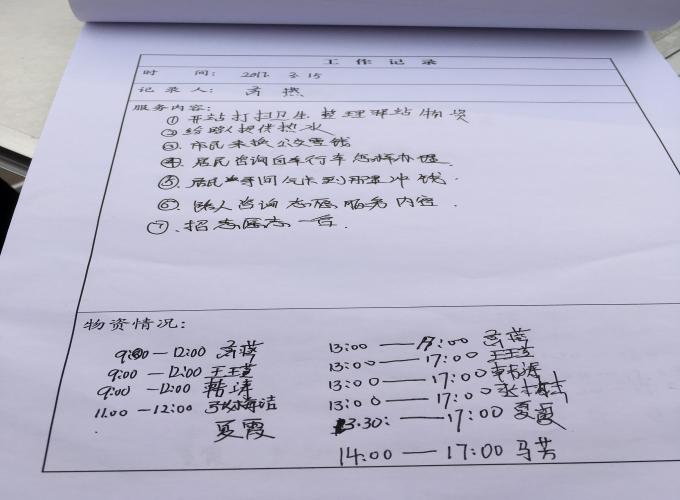 工作记录
时 间: 2017 3 15
记录人:
服务内容:
① 开站打扫卫生 整理驿站物资
② 给路人提供热水
③. 市民来换公交零钱
④. 居民咨询自行车怎样办理.
⑤. 居民 问 到 冲钱.
⑥. 路人咨询志愿服务内容.
⑦. 招志愿者一名.
物资情况:
9:00 — 12:00
9:00 — 12:00
9:00 — 12:00 韩涛
11.00 — 12:00 张梅洁
夏霞
13:00 — 17:00
13:00 — 17:00
13:00 — 17:00 韩涛
13:00 — 17:00 张梅洁
13.30: — 17:00 夏霞
14:00 — 17:00 马芳